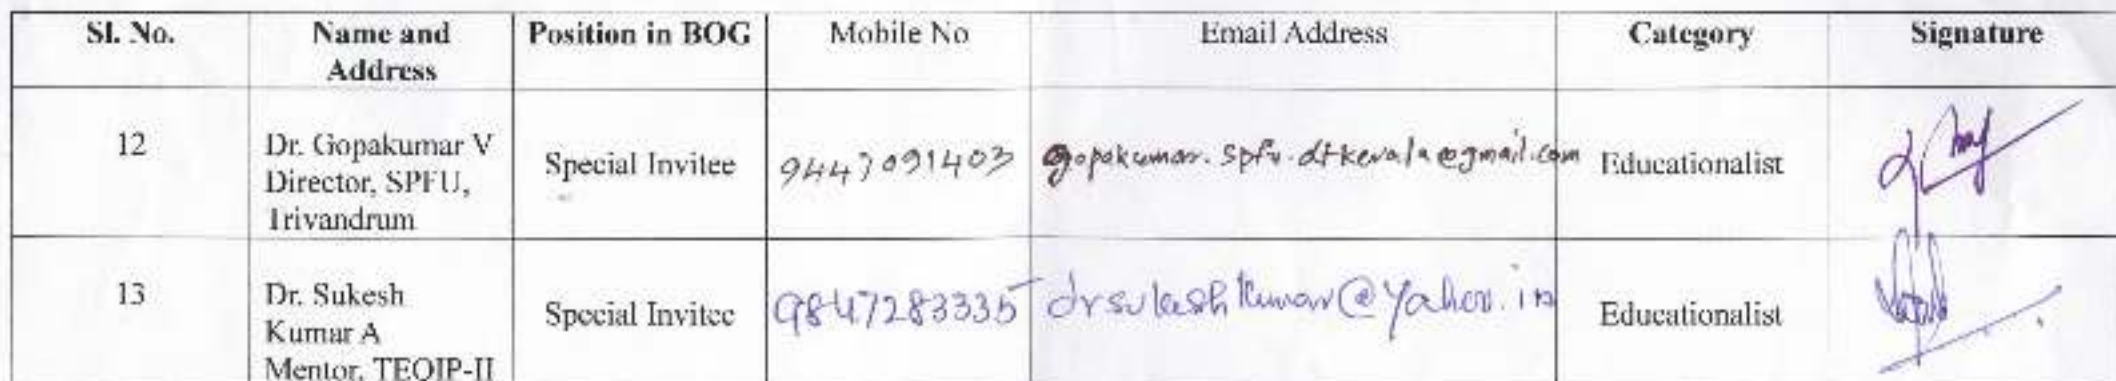 Sl. No. Name and Address Position in BOG Mobile No Email Address Category Signature
12 Dr. Gopakumar V Director, SPFU, Trivandrum Special Invitee 9447091403 gopakumar.spfu.dtkerala@gmail.com Educationalist
13 Dr. Sukesh Kumar A Mentor, TEQIP-II Special Invitee 9847283335 drsukeshkumar@yahoo.in Educationalist